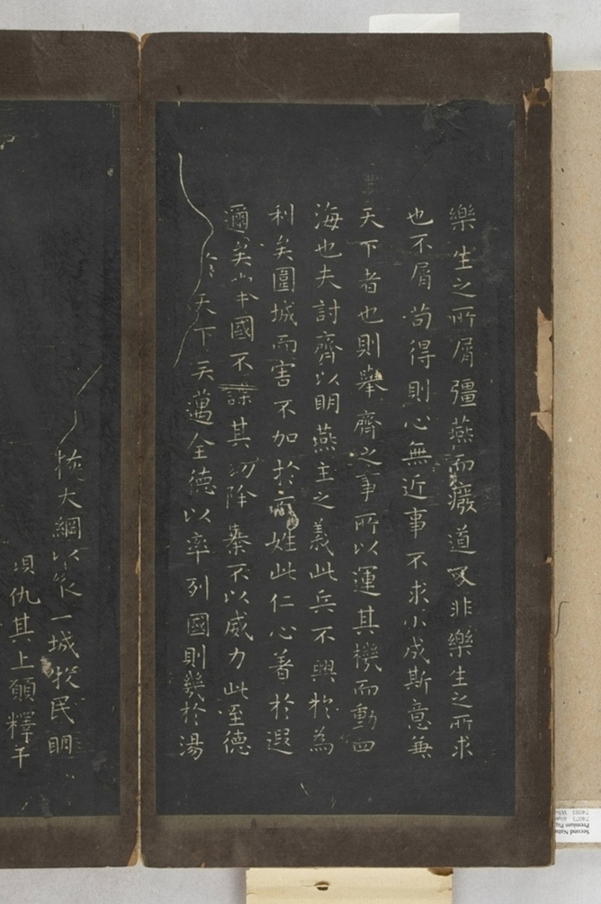 樂生之所屑彊燕而廢道又非樂生之所求
也不屑苟得則心無近事不求小成斯意兼
天下者也則舉齊之事所以運其機而動四
海也夫討齊以明燕主之義此兵不興於為
利矣圍城而害不加於百姓此仁心著於遐
邇矣國不謀其功除暴不以威力此至德
天下矣邁全德以率列國則幾於湯
大綱以城牧民明
仇其上願釋干
Second Natu
Premium Pap